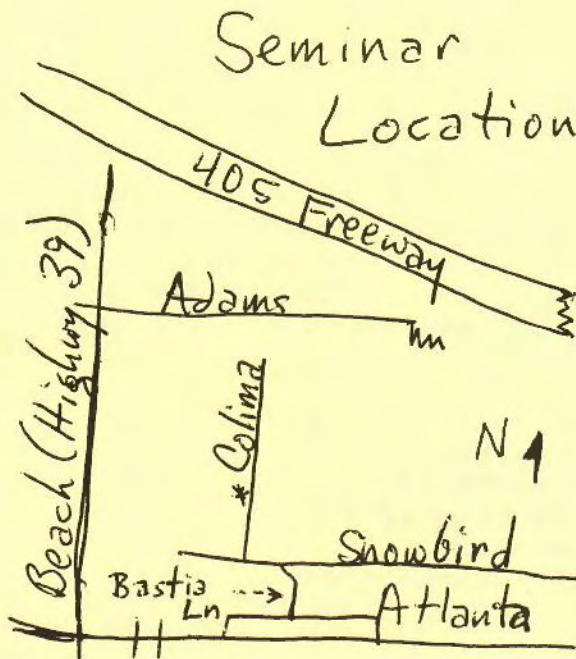 Seminar
Location
405 Freeway
Beach (Highwy 39)
Adams
* Colima
N
Snowbird
Bastia
Ln
Atlanta